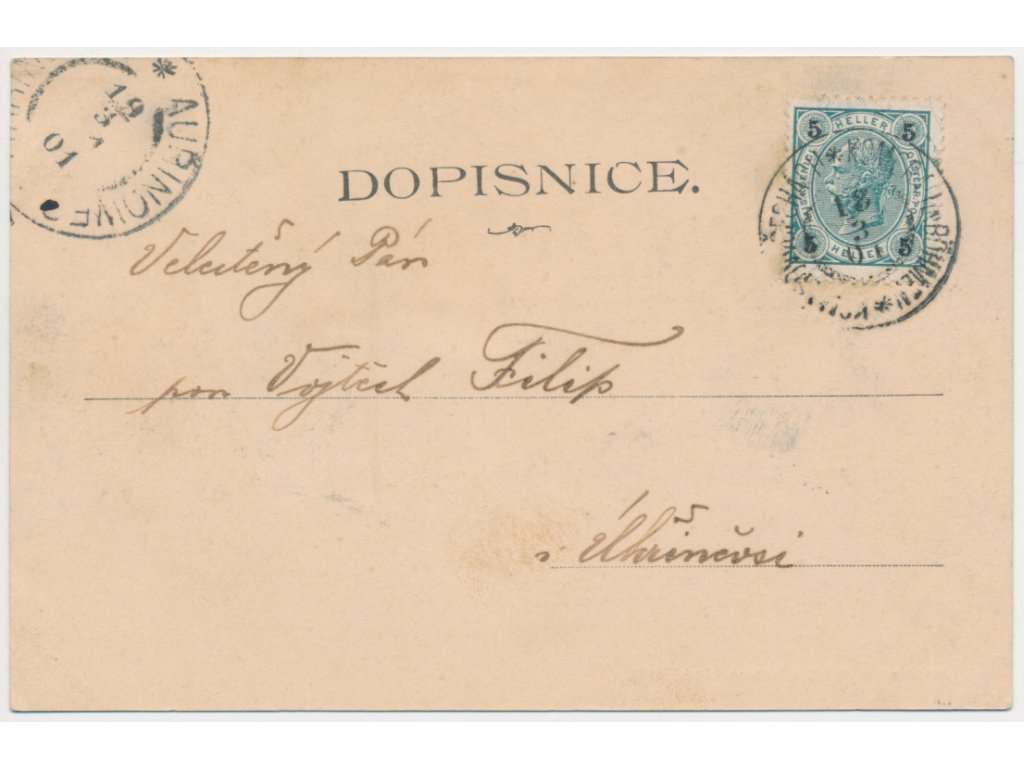 * AUŘINOWES
19
3
01
DOPISNICE.
5 HELLER 5
5 HELLER 5
18
3
01
Velectěný Pán
pan Vojtěch Filip
v Úhříněvsi